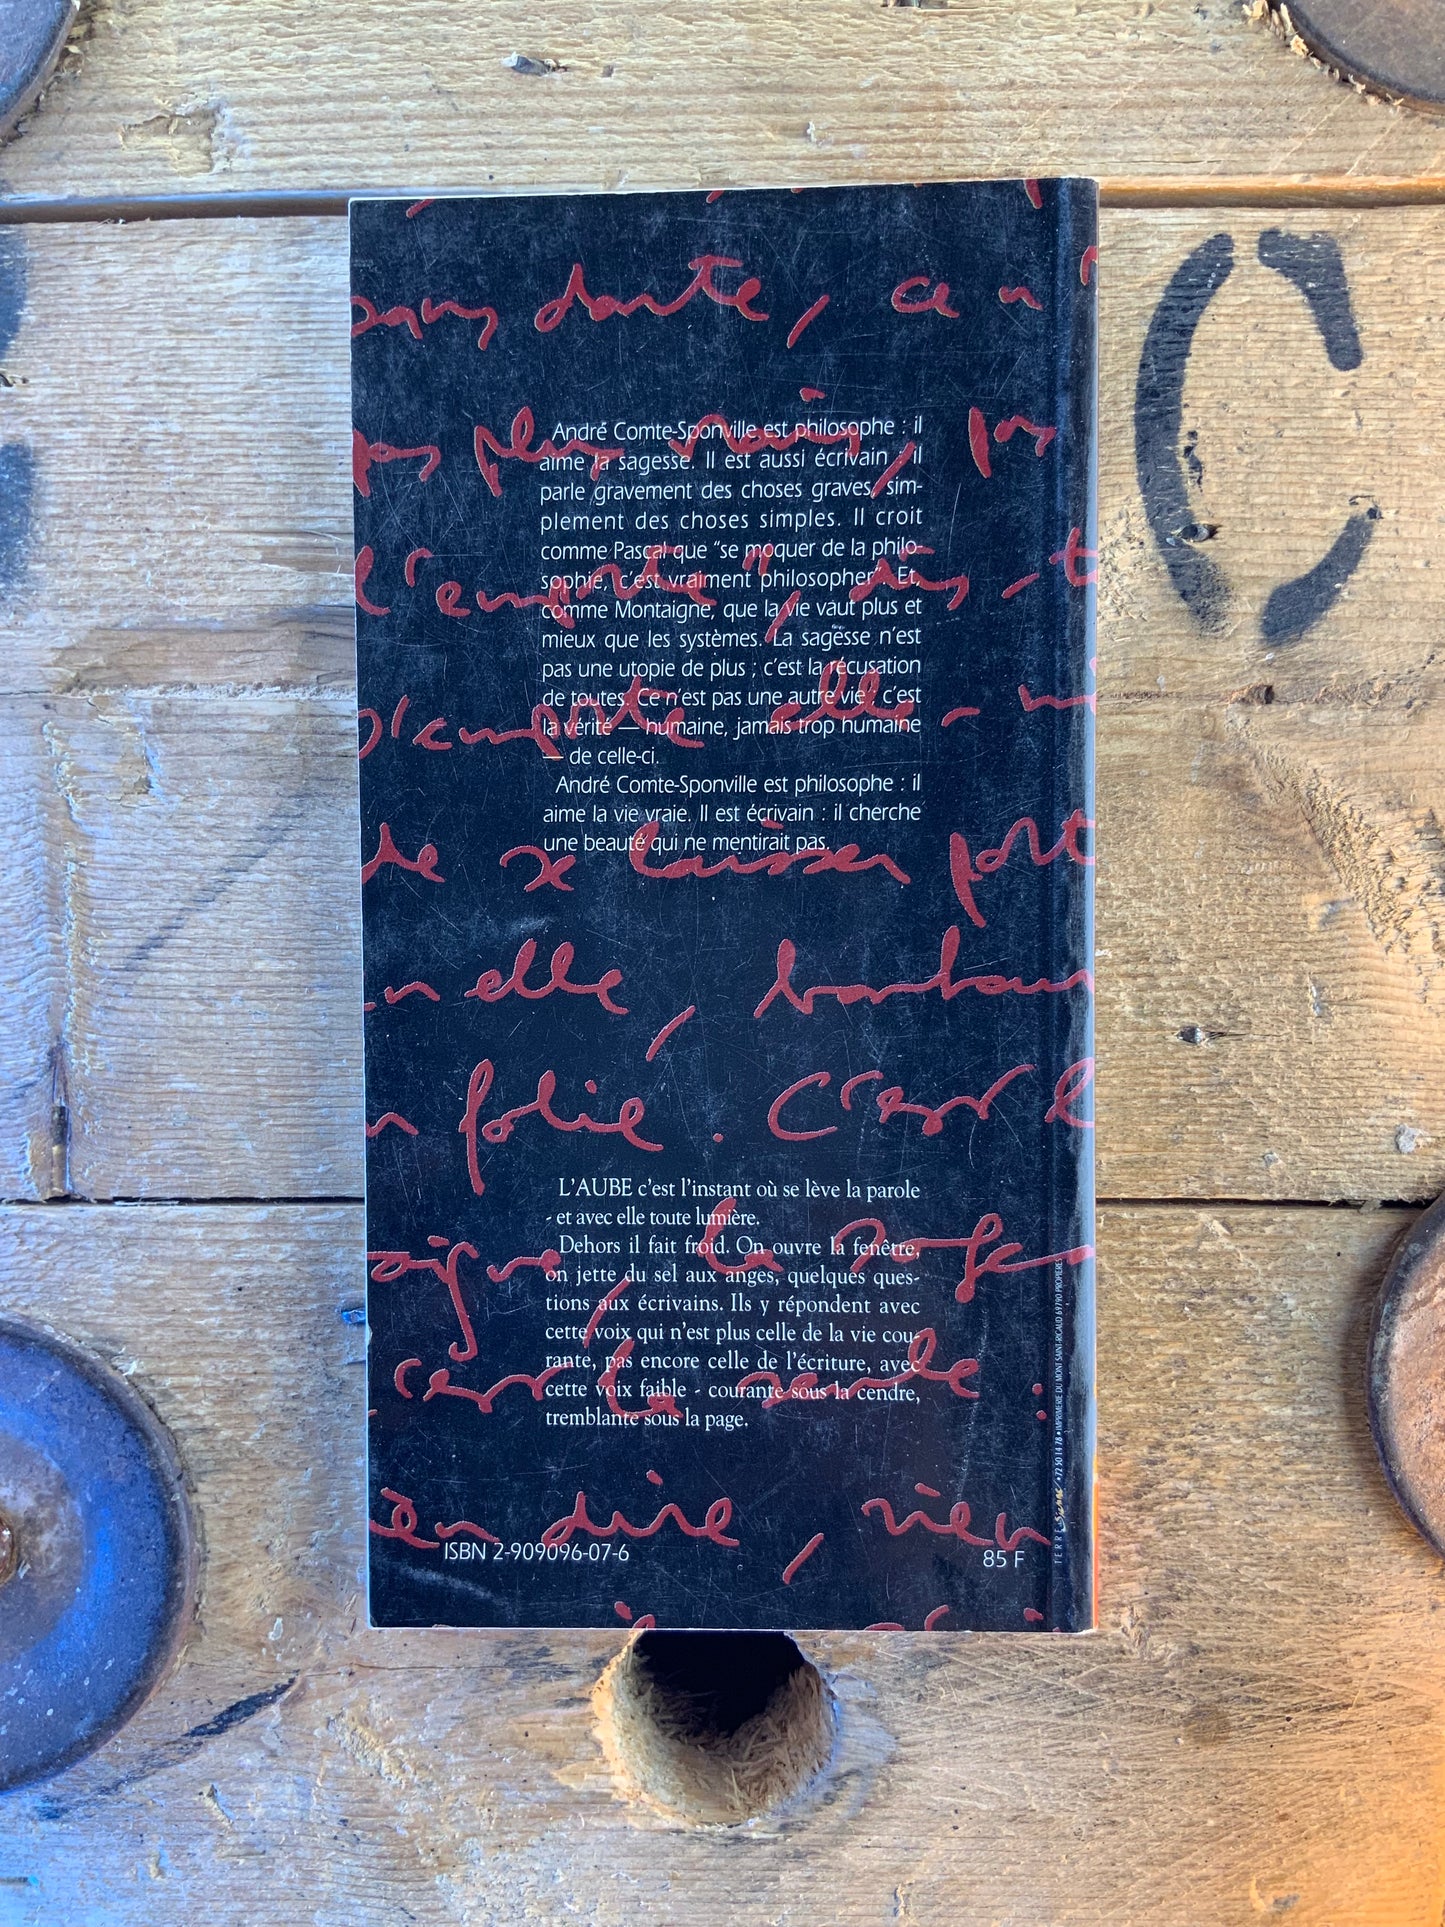 sans doute, ce n
pas plus vrais, pas
André Comte-Sponville est philosophe : il
aime la sagesse. Il est aussi écrivain : il
parle gravement des choses graves, sim-
plement des choses simples. Il croit
comme Pascal que “se moquer de la philo-
sophie, c’est vraiment philosopher”. Et,
comme Montaigne, que la vie vaut plus et
mieux que les systèmes. La sagesse n’est
pas une utopie de plus ; c’est la récusation
de toutes. Ce n’est pas une autre vie : c’est
la vérité — humaine, jamais trop humaine
— de celle-ci.
André Comte-Sponville est philosophe : il
aime la vie vraie. Il est écrivain : il cherche
une beauté qui ne mentirait pas.
de se laisser port
en elle,
n folie. C'est l
L’AUBE c’est l’instant où se lève la parole
- et avec elle toute lumière.
Dehors il fait froid. On ouvre la fenêtre,
on jette du sel aux anges, quelques ques-
tions aux écrivains. Ils y répondent avec
cette voix qui n’est plus celle de la vie cou-
rante, pas encore celle de l’écriture, avec
cette voix faible - courante sous la cendre,
tremblante sous la page.
c'est la seule.
ien dire, rien
ISBN 2-909096-07-6
85 F
TERRE Sienne • 72 50 14 78 • IMPRIMERIE DU MONT SAINT-RIGAUD 69790 PROPIERES
C